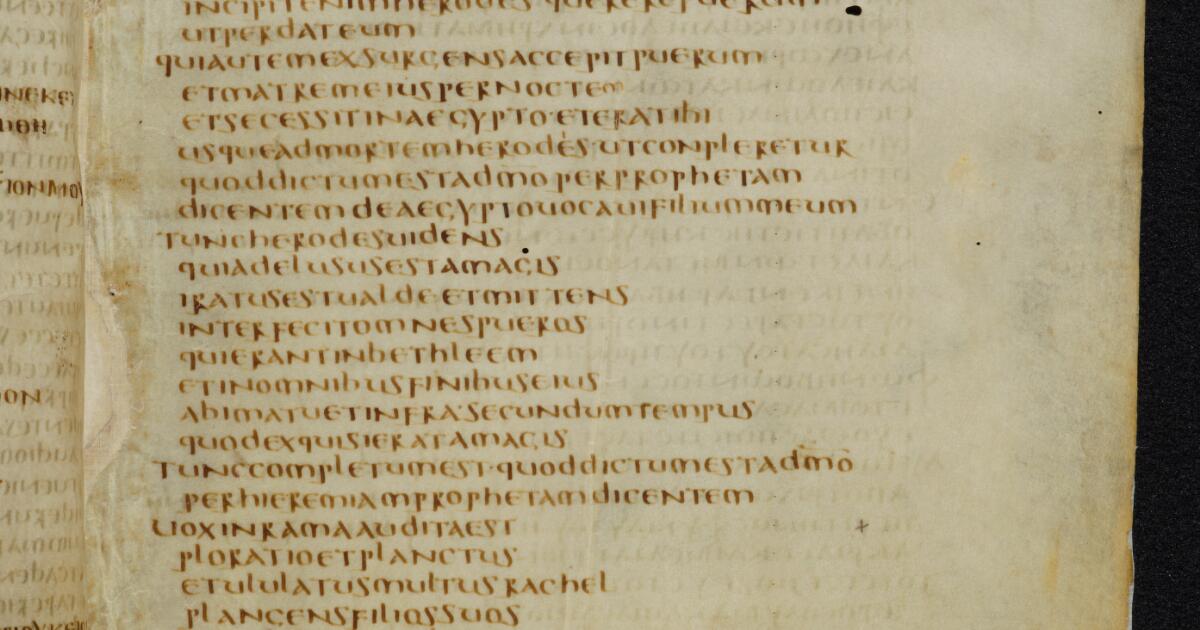 UTPERDATEUM
QUIAUTEMEXSURGENSACCEPITPUERUM
ETMATREMEIUSPERNOCTEM
ETSECESSITINAEGYPTO·ETERATIBI
USQUEADMORTEMHERODES·UTCONPLERETUR
QUODDICTUMESTADM̅O̅PERPROPHETAM
DICENTEMDEAEGYPTOUOCAUIFILIUMMEUM
TUNCHERODESUIDENS
QUIADELUSUSESTAMAGIS
IRATUSESTUALDE·ETMITTENS
INTERFECITOMNESPUEROS
QUIERANTINBETHLEEM
ETINOMNIBUSFINIBUSEIUS
ABIMATUETINFRA·SECUNDUMTEMPUS
QUODEXQUISIERATAMAGIS
TUNCCOMPLETUMEST·QUODDICTUMESTADM̅O̅
PERHIEREMIAMPROPHETAMDICENTEM
UOXINRAMAAUDITAEST
PLORATIOETPLANCTUS
ETULULATUSMULTUSRACHEL
PLANGENSFILIOSSUOS